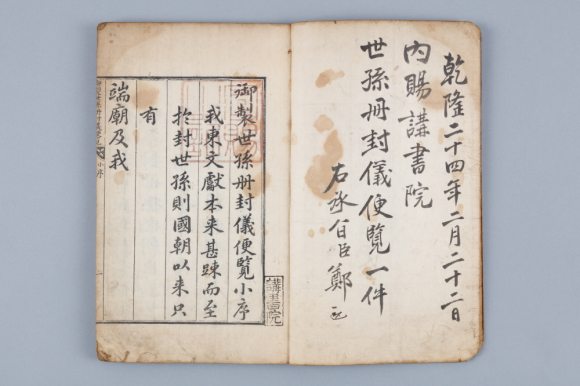 乾隆二十四年二月二十二日
內賜講書院
世孫冊封儀便覽一件
右承旨臣鄭
御製世孫冊封儀便覽小序
我東文獻本来甚踈而至
於封世孫則國朝以来只
有
端廟及我
小序
講書院